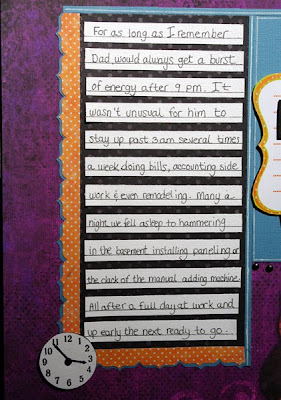 For as long as I remember
Dad would always get a burst
of energy after 9 pm. It
wasn't unusual for him to
stay up past 3am several times
a week doing bills, accounting side
work & even remodeling. Many a
night we fell asleep to hammering
in the basement installing paneling or
the clack of the manual adding machine.
All after a full day at work and
up early the next ready to go.